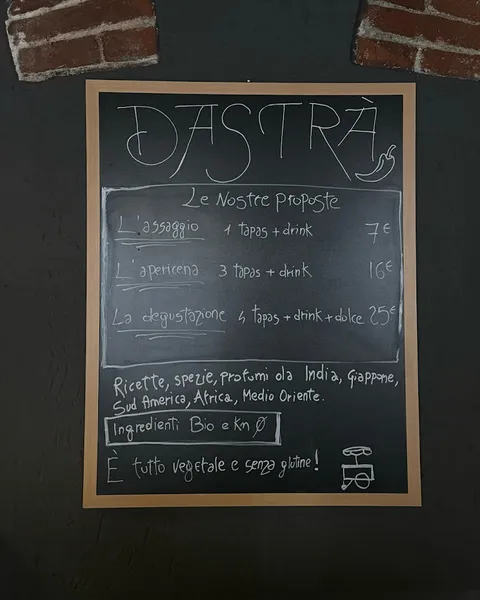 DASTRÀ
Le Nostre Proposte
L'assaggio 1 tapas + drink 7€
L'apericena 3 tapas + drink 16€
La degustazione 4 tapas + drink + dolce 25€
Ricette, spezie, profumi da India, Giappone,
Sud America, Africa, Medio Oriente.
Ingredienti Bio e Km 0
È tutto vegetale e senza glutine!